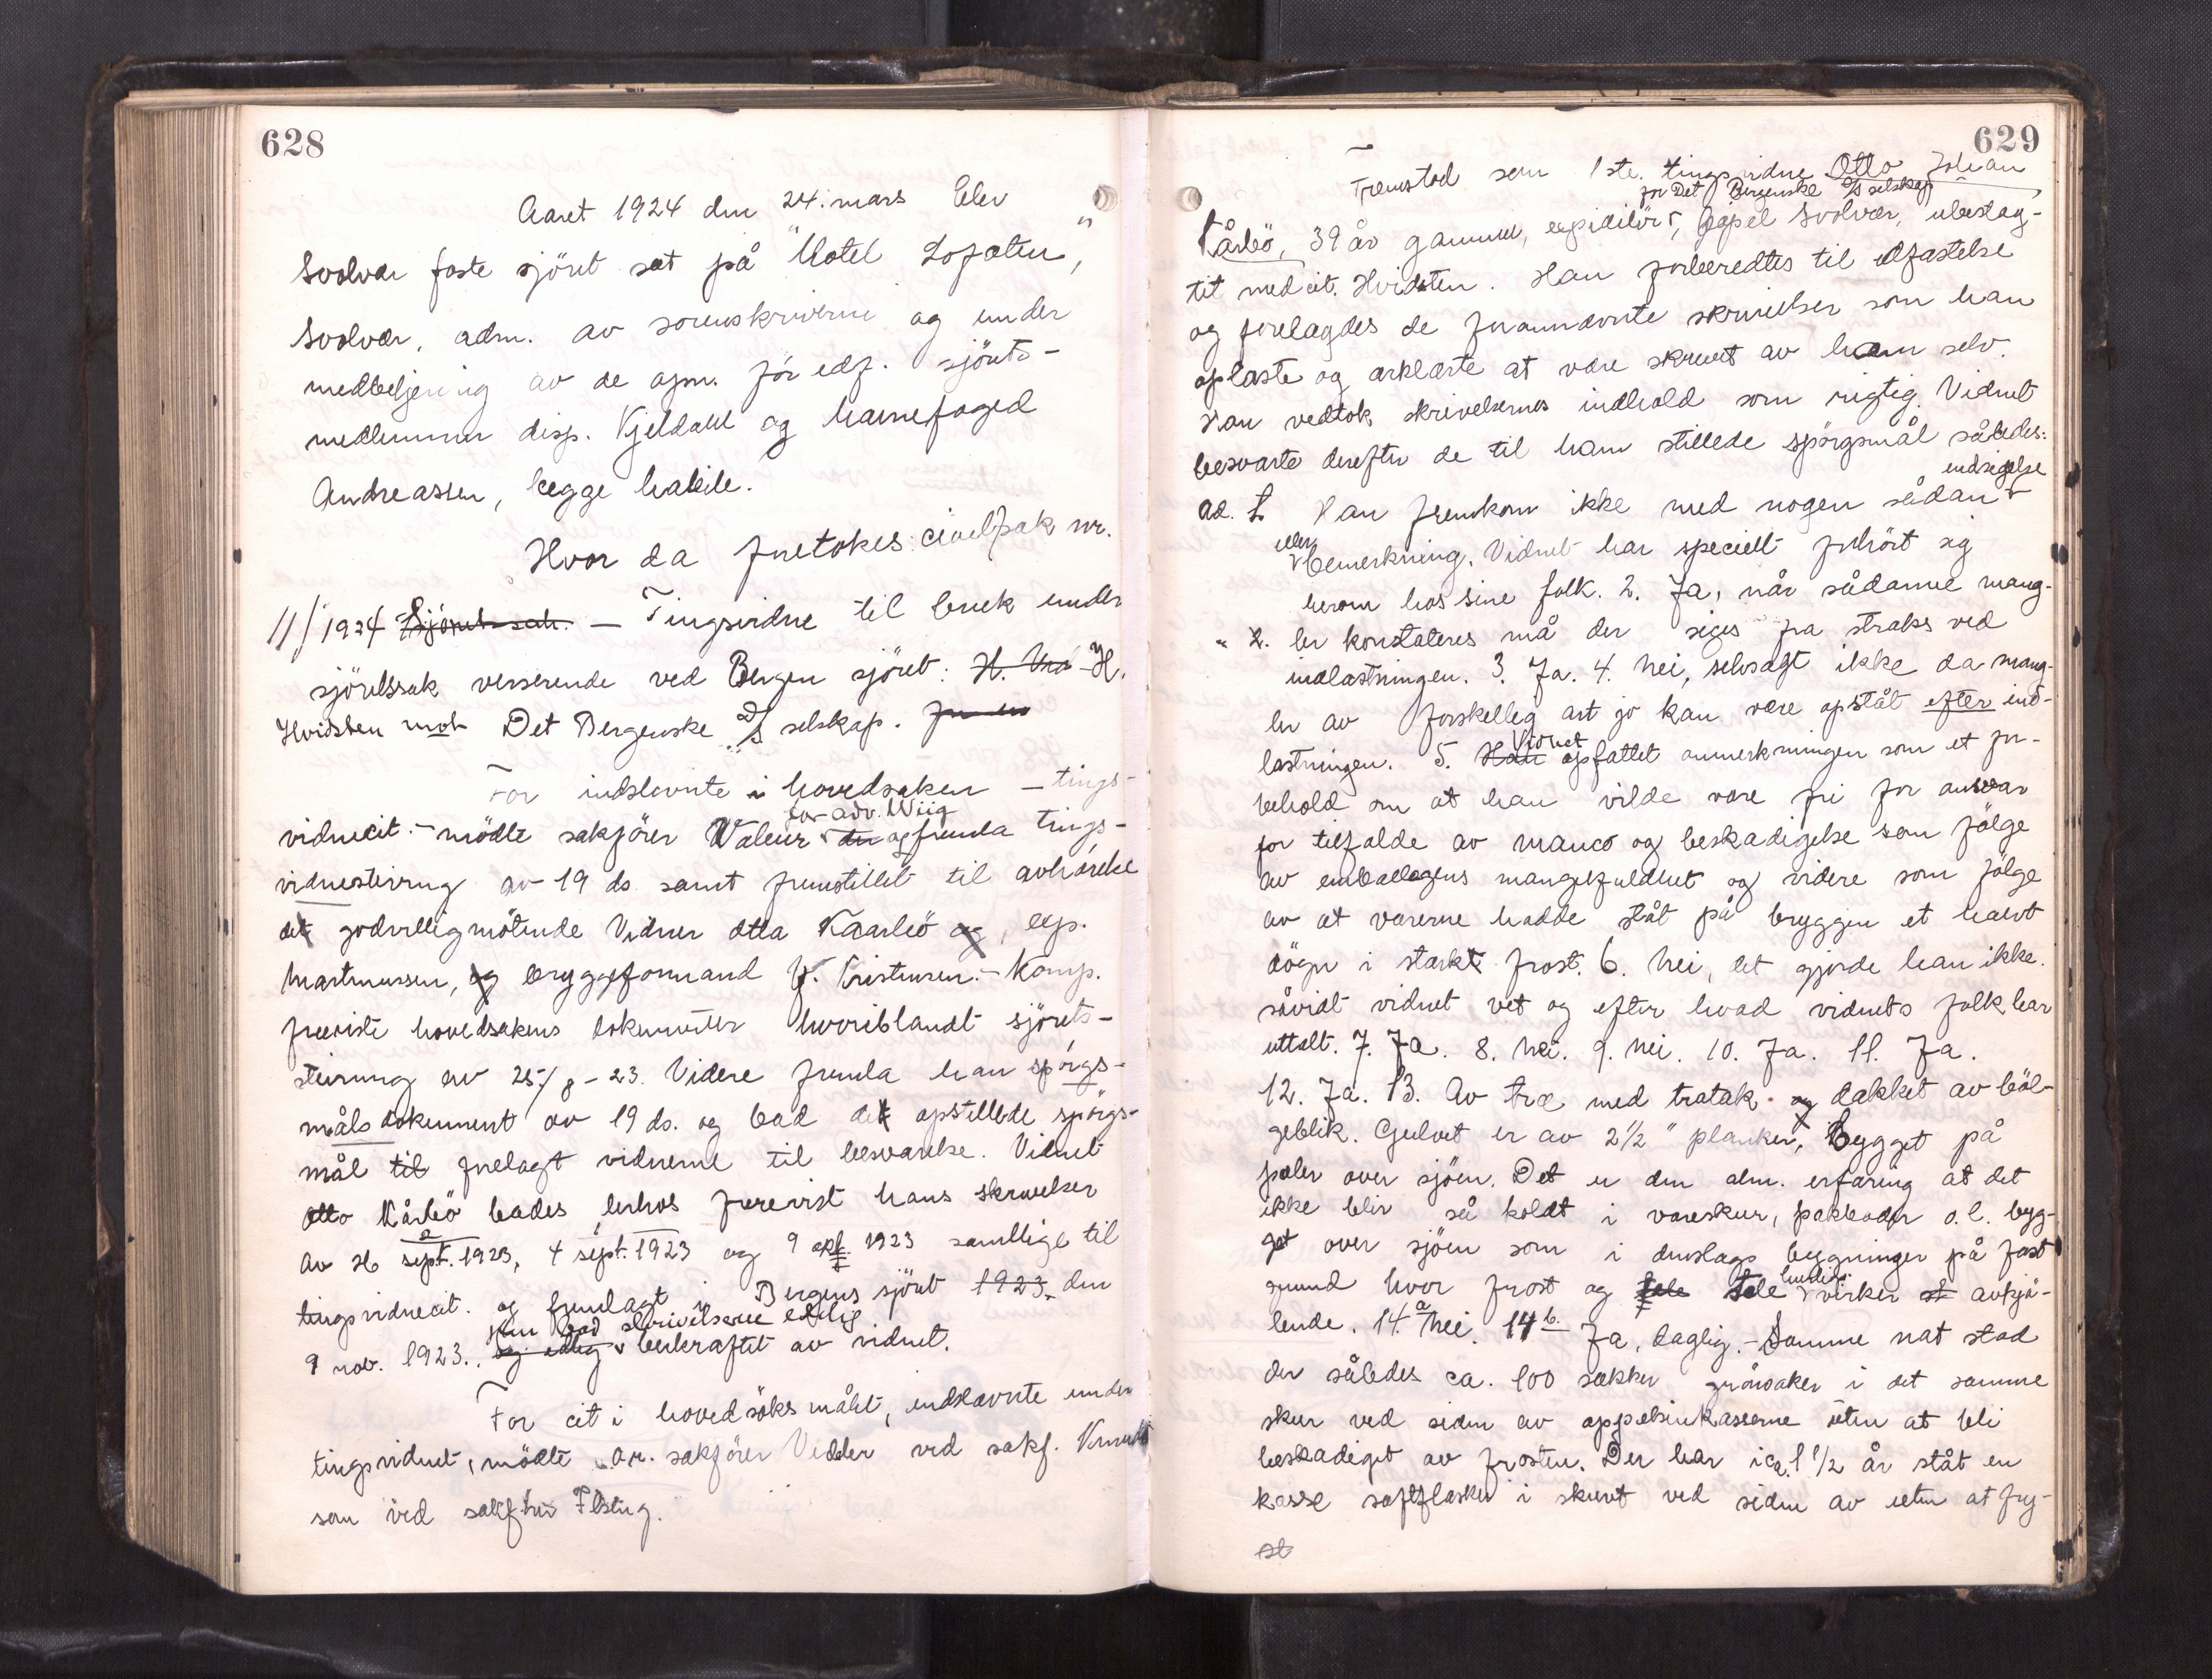 628
Aaret 1924 den 24. mars blev
Svolvær faste sjöret sat på "Hotel Lofoten",
Svolvær, adm. av sorenskriveren og under
medbetjening av de opn. för edf. sjörets-
medlemmer disp. Kjeldahl og havnefoged
Andreassen, begge habile.
Hvor da foretokes: civilsak nr.
11/1924 Sjöretssak. — Tingsvidne til bruk under
sjöretssak verserende ved Bergen sjöret: H. H.
Hvidsten mot Det Bergenske D/S selskap.
For indstevnte i hovedsaken — tings-
for adv. Wiig
vidnecit. — mödte sakförer Valeur og fremla tings-
vidnestevning av 19 ds. samt fremstillet til avhörelse
de godvilligmötende Vidner Otto Kaarbö og, exp.
Martinussen, og bryggeformand Kristensen. — Komp.
foreviste hovedsakens dokumenter hvoriblandt sjörets-
stevning av 25/8 - 23. Videre fremla han spörgs-
målsdokument av 19 ds. og bad de opstillede spörgs-
mål til forelagt vidnerne til besvarelse. Vidnet
Otto Kårbö bades derhos forevist hans skrivelser
av sept. 1923, 4 sept. 1923 og 9 okt. 1923 samtlige til
tingsvidnecit. og fremlagt i Bergens sjöret 1923. den
skrivelserne edelig
9 nov. 1923. og edlig bekræftet av vidnet.
For cit i hovedsöksmålet, indstevnte under
tingsvidnet, mödte o.r. sakförer Vedeler ved sakf.
som ved sakförer
629
Fremstod som 1ste tingsvidne Otto Johan
for Det Bergenske D/S selskap
Kårbö, 39 år gammel, expeditör, Svolvær, ubeslæg-
tet med cit. Hvidsten. Han forberedtes til edfæstelse
og forelagdes de forannævnte skrivelser som han
oplæste og erklærte at være skrevet av ham selv.
Han vedtok skrivelsernes indhold som rigtig. Vidnet
besvarte derefter de til ham stillede spörgsmål således:
indsigelse
ad. 1. Han fremkom ikke med nogen sådan
eller
bemerkning. Vidnet har specielt forhört sig
herom hos sine folk. 2. Ja, når sådanne mang-
" 2. ler konstateres må der siges fra straks ved
indlastningen. 3. Ja. 4. Nei, selvsagt ikke da mang-
ler av forskjellig art jo kan være opståt efter ind-
Vidnet
lastningen. 5. Han opfattet anmerkningen som et for-
behold om at han vilde være fri for ansvar
for tilfælde av manco og beskadigelse som fölge
av emballagens mangefuldhet og videre som fölge
av at varerne hadde ståt på bryggen et halvt
dögn i stærk frost. 6. Nei, det gjorde han ikke.
såvidt vidnet vet og efter hvad vidnets folk har
uttalt. 7. Ja. 8. Nei. 9. Nei. 10. Ja. 11. Ja.
12. Ja. 13. Av træ med tretak og dækket av böl-
geblik. Gulvet er av 2 1/2 " planker, bygget på
pæler over sjöen. Det er den alm. erfaring at det
ikke blir så koldt i vareskur, pakboder o.l. byg-
get over sjöen som i den slags bygninger på fast
grund hvor frost og tele tele virker avkjö-
lende. 14.a Nei. 14 b. Ja, daglig. — Samme nat stod
der således ca. 100 sækker grönsaker i det samme
skur ved siden av appelsinkasserne uten at bli
beskadiget av frosten. Der har i ca. 1 1/2 år ståt en
kasse saftflasker i skuret ved siden av uten at fry-
st